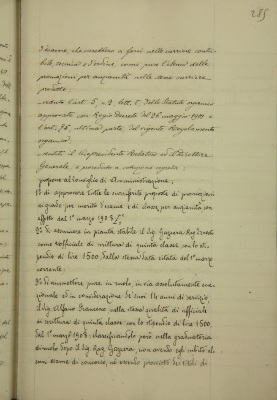 285
d'esame, che sarebbero a farsi nelle carriere conta-
bile, tecnica e d'ordine, come pure l'elenco delle
promozioni per anzianità nelle stesse carriere
predette.
- veduto l'art. 5, n. 9 lett. C dello Statuto organico
approvato con Regio Decreto del 26 maggio 1901 e
l'art. 75, ultima parte del vigente Regolamento
organico.
- sentiti il Vicepresidente Relatore ed il Direttore
Generale, e procedendo a votazione segreta;
propone al Consiglio di Amministrazione:
1º di approvare tutte le suriferite proposte di promozioni
ai gradi per merito d'esame e di classe per anzianità con
effetto dal 1º marzo 1908;
2º di assumere in pianta stabile il Sig. Gazzera Rag. Ernesto
come ufficiale di scrittura di quinta classe con lo sti-
pendio di lire 1500, dalla stessa data citata del 1º marzo
corrente.
3º di ammettere pure in ruolo, in via assolutamente ec-
cezionale ed in considerazione de' suoi 14 anni di servizio,
il Sig. Alfano Francesco nella stessa qualità di ufficiale
di scrittura di quinta classe con lo stipendio di lire 1500,
dal 1º marzo 1908, classificandolo però nella graduatoria
di ruolo dopo il Sig. Rag. Gazzera, non avendo egli subito al-
cun esame di concorso, nè avendo